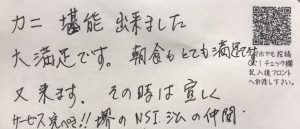 カニ 堪能 出来ました
大満足です。 朝食もとても満足です
又来ます。 その時は宜しく
サービス完ペキ!! 堺のNSI、法の仲間
スマホでも投稿
OK!チェック欄
記入後フロント
へお渡し下さい。